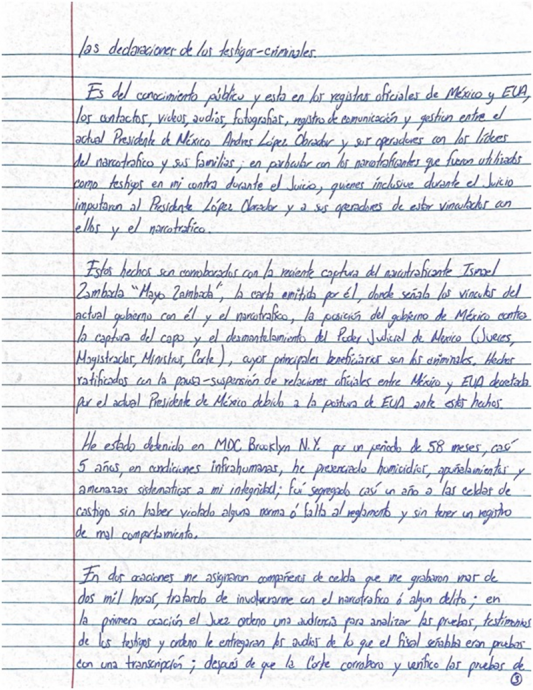 las declaraciones de los testigos-criminales.
Es del conocimiento público y esta en los registros oficiales de México y EUA,
los contactos, videos, audios, fotografías, registro de comunicación y gestion entre el
actual Presidente de México Andres López Obrador y sus operadores con los líderes
del narcotrafico y sus familias; en particular con los narcotraficantes que fueron utilizados
como testigos en mi contra durante el Juicio, quienes inclusive durante el Juicio
imputaron al Presidente López Obrador y a sus operadores de estar vinculados con
ellos y el narcotrafico.
Estos hechos son corroborados con la reciente captura del narcotraficante Ismael
Zambada "Mayo Zambada", la carta emitida por él, donde señala los vinculos del
actual gobierno con él y el narcotrafico, la posición del gobierno de México contra
la captura del capo y el desmantelamiento del Poder Judicial de Mexico (Jueces,
Magistrados, Ministros, Corte), cuyos principales beneficiarios son los criminales. Hechos
ratificados con la pausa-suspensión de relaciones oficiales entre México y EUA decretada
por el actual Presidente de México debido a la postura de EUA ante estos hechos.
He estado detenido en MDC Brooklyn N.Y. por un periodo de 58 meses, casí
5 años, en condiciones infrahumanas, he presenciado homicidios, apuñalamientos y
amenazas sistematicas a mi integridad; fuí segregado casí un año a las celdas de
castigo sin haber violado alguna norma ó falta al reglamento y sin tener un registro
de mal comportamiento.
En dos ocaciones me asignaron compañeros de celda que me grabaron mas de
dos mil horas, tratando de involucrarme con el narcotrafico ó algun delito; en
la primera ocación el Juez ordeno una audiencia para analizar las pruebas, testimonios
de los testigos y ordeno le entregaran los audios de lo que el fiscal señalaba eran pruebas
con una transcripción; después de que la Corte corroboro y verifico las pruebas de
3